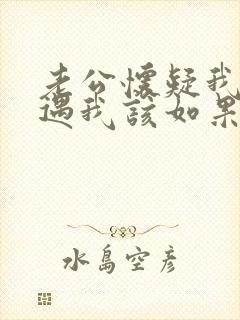 老公懷疑我
遇我該如果
水島空彦